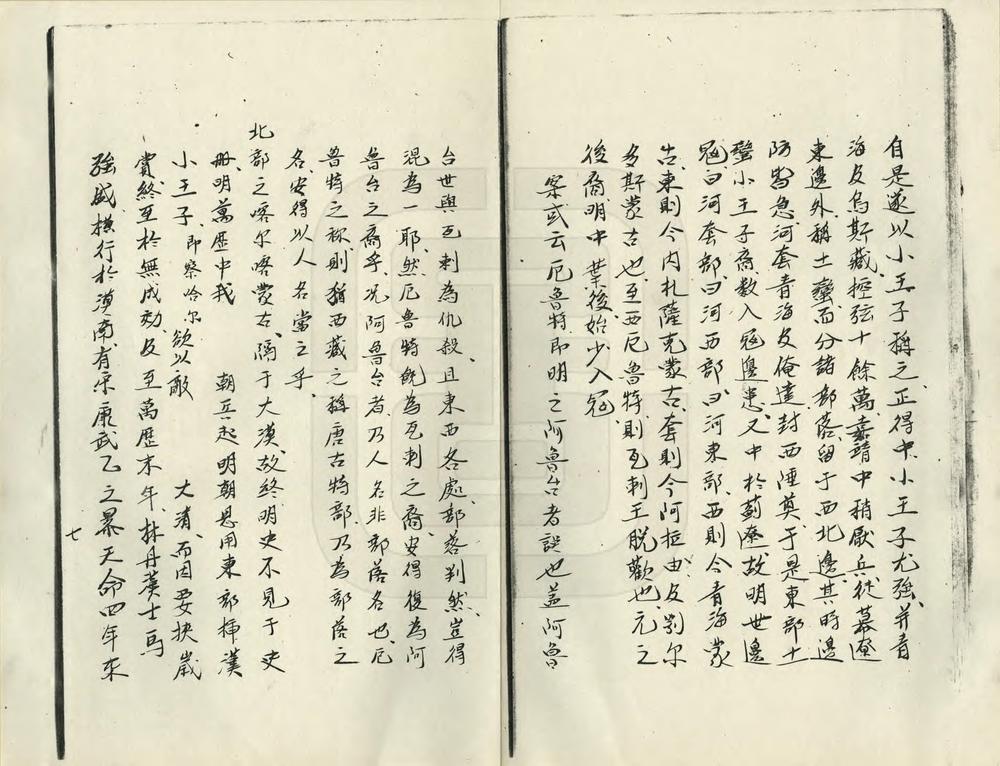 自是遂以小王子稱之正得中小王子尤強并青
海及烏斯藏控弦十餘萬嘉靖中稍厭兵徒幕遼
東邊外稱土蠻而分諸部落留于西北邊其時邊
防皆急河套青海及俺達封西陲奠于是東部土
蠻小王子裔數入寇邊患又中於薊遼故明世邊
寇曰河套部曰河西部曰河東部西則今青海蒙
古東則今內札薩克蒙古套則今阿拉由及鄂尔
多斯蒙古也至西尼魯特則瓦剌王脱歡也元之
後裔明中葉後始少入寇
案或云厄魯特即明之阿魯台者誤也蓋阿魯
台世與瓦剌為仇殺且東西各處部落判然豈得
混為一耶然厄魯特旣為瓦剌之裔安得復為阿
魯台之裔乎况阿魯台者乃人名非部落名也厄
魯特之称則猶西藏之稱唐古特部乃為部落之
名安得以人名當之乎
北部之喀尔喀蒙古隔于大漠故終明史不見于史
册明萬歷中我 朝兵起明朝思用東部插漢
小王子即察哈尔欲以敵 大清而因要挾歲
賞終至於無成効及至萬歷末年林丹漢士馬
強盛橫行於漠南有宋康武乙之暴天命四年來
七